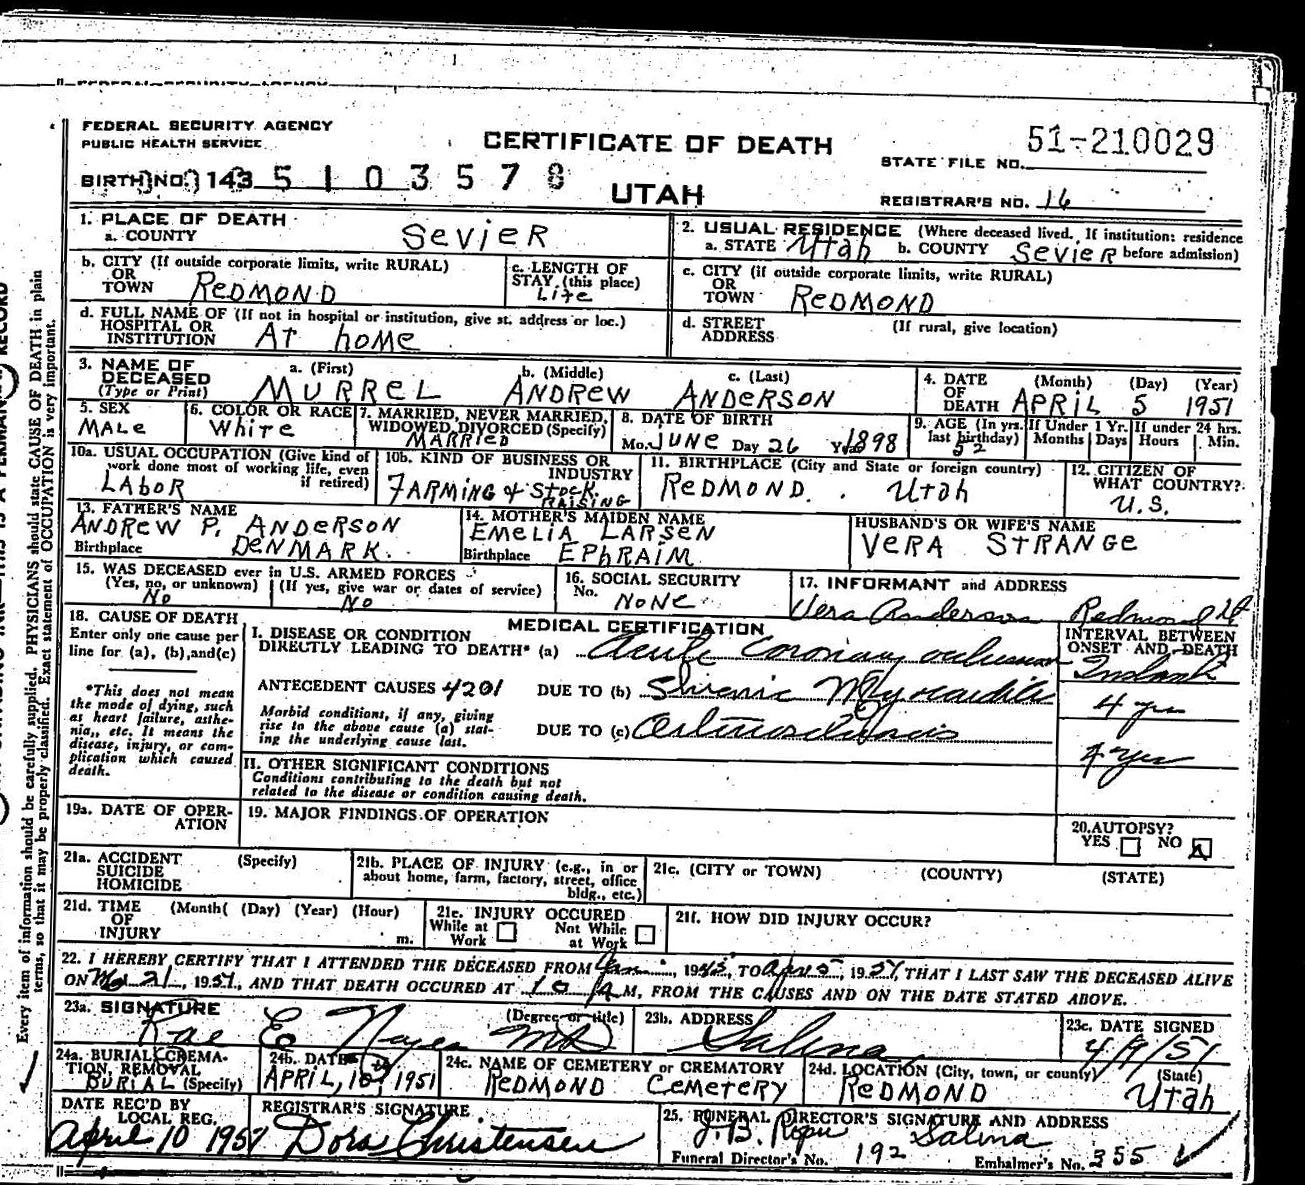 FEDERAL SECURITY AGENCY
FEDERAL SECURITY AGENCY
PUBLIC HEALTH SERVICE
CERTIFICATE OF DEATH
51-210029
STATE FILE NO.
BIRTH NO. 143 5 1 0 3 5 7 8
UTAH
REGISTRAR'S NO. 16
1. PLACE OF DEATH
a. COUNTY SEVIER
2. USUAL RESIDENCE (Where deceased lived. If institution: residence
a. STATE Utah b. COUNTY SEVIER before admission)
b. CITY (If outside corporate limits, write RURAL)
OR
TOWN REDMOND
c. LENGTH OF
STAY (this place)
Life
c. CITY (if outside corporate limits, write RURAL)
OR
TOWN REDMOND
d. FULL NAME OF (If not in hospital or institution, give st. address or loc.)
HOSPITAL OR
INSTITUTION AT home
d. STREET
ADDRESS
(If rural, give location)
3. NAME OF
DECEASED
(Type or Print)
a. (First) b. (Middle) c. (Last)
MURREL ANDREW ANDERSON
4. DATE
OF
DEATH
(Month) (Day) (Year)
APRIL 5 1951
5. SEX
MALE
6. COLOR OR RACE
White
7. MARRIED, NEVER MARRIED,
WIDOWED, DIVORCED (Specify)
MARRIED
8. DATE OF BIRTH
Mo. JUNE Day 26 Year 1898
9. AGE (In yrs.
last birthday)
52
If Under 1 Yr.
Months Days
If under 24 hrs.
Hours Min.
10a. USUAL OCCUPATION (Give kind of
work done most of working life, even
if retired)
LABOR
10b. KIND OF BUSINESS OR
INDUSTRY
FARMING & STOCK
RAISING
11. BIRTHPLACE (City and State or foreign country)
REDMOND. Utah
12. CITIZEN OF
WHAT COUNTRY?
U.S.
13. FATHER'S NAME
ANDREW P. ANDERSON
Birthplace DENMARK.
14. MOTHER'S MAIDEN NAME
EMELIA LARSEN
Birthplace EPHRAIM
HUSBAND'S OR WIFE'S NAME
VERA STRANGE
15. WAS DECEASED ever in U.S. ARMED FORCES
(Yes, no, or unknown) (If yes, give war or dates of service)
No No
16. SOCIAL SECURITY
No. NONE
17. INFORMANT and ADDRESS
Vera Anderson Redmond Ut
18. CAUSE OF DEATH
Enter only one cause per
line for (a), (b), and (c)
*This does not mean
the mode of dying, such
as heart failure, asthe-
nia, etc. It means the
disease, injury, or com-
plication which caused
death.
MEDICAL CERTIFICATION
I. DISEASE OR CONDITION
DIRECTLY LEADING TO DEATH* (a) Acute Coronary occlusion
ANTECEDENT CAUSES 4201 DUE TO (b) Myocarditis
Morbid conditions, if any, giving
rise to the above cause (a) stat-
ing the underlying cause last.
DUE TO (c)
II. OTHER SIGNIFICANT CONDITIONS
Conditions contributing to the death but not
related to the disease or condition causing death.
INTERVAL BETWEEN
ONSET AND DEATH
Instant
4 yrs
4 yrs
19a. DATE OF OPER-
ATION
19. MAJOR FINDINGS OF OPERATION
20. AUTOPSY?
YES NO X
21a. ACCIDENT
SUICIDE
HOMICIDE
(Specify)
21b. PLACE OF INJURY (e.g., in or
about home, farm, factory, street, office
bldg., etc.)
21c. (CITY or TOWN) (COUNTY) (STATE)
21d. TIME
OF
INJURY
(Month( (Day) (Year) (Hour)
m.
21e. INJURY OCCURED
While at
Work
Not While
at Work
21f. HOW DID INJURY OCCUR?
22. I HEREBY CERTIFY THAT I ATTENDED THE DECEASED FROM Jan, 1945, TO Apr 5, 1951, THAT I LAST SAW THE DECEASED ALIVE
ON 21, 1951, AND THAT DEATH OCCURED AT 10 AM, FROM THE CAUSES AND ON THE DATE STATED ABOVE.
23a. SIGNATURE (Degree or title)
Rae E Noyes MD
23b. ADDRESS
Salina
23c. DATE SIGNED
4/9/51
24a. BURIAL, CREMA-
TION, REMOVAL
BURIAL (Specify)
24b. DATE
APRIL, 10th 1951
24c. NAME OF CEMETERY OR CREMATORY
REDMOND CEMETERY
24d. LOCATION (City, town, or county) (State)
REDMOND Utah
DATE REC'D BY
LOCAL REG.
April 10 1951
REGISTRAR'S SIGNATURE
Dora Christensen
25. FUNERAL DIRECTOR'S SIGNATURE AND ADDRESS
J.B. Salina
Funeral Director's No. 192 Embalmer's No. 355
Every item of information should be carefully supplied. PHYSICIANS should state CAUSE OF DEATH in plain
terms, so that it may be properly classified. Exact statement of OCCUPATION is very important.
THIS IS A PERMANENT RECORD